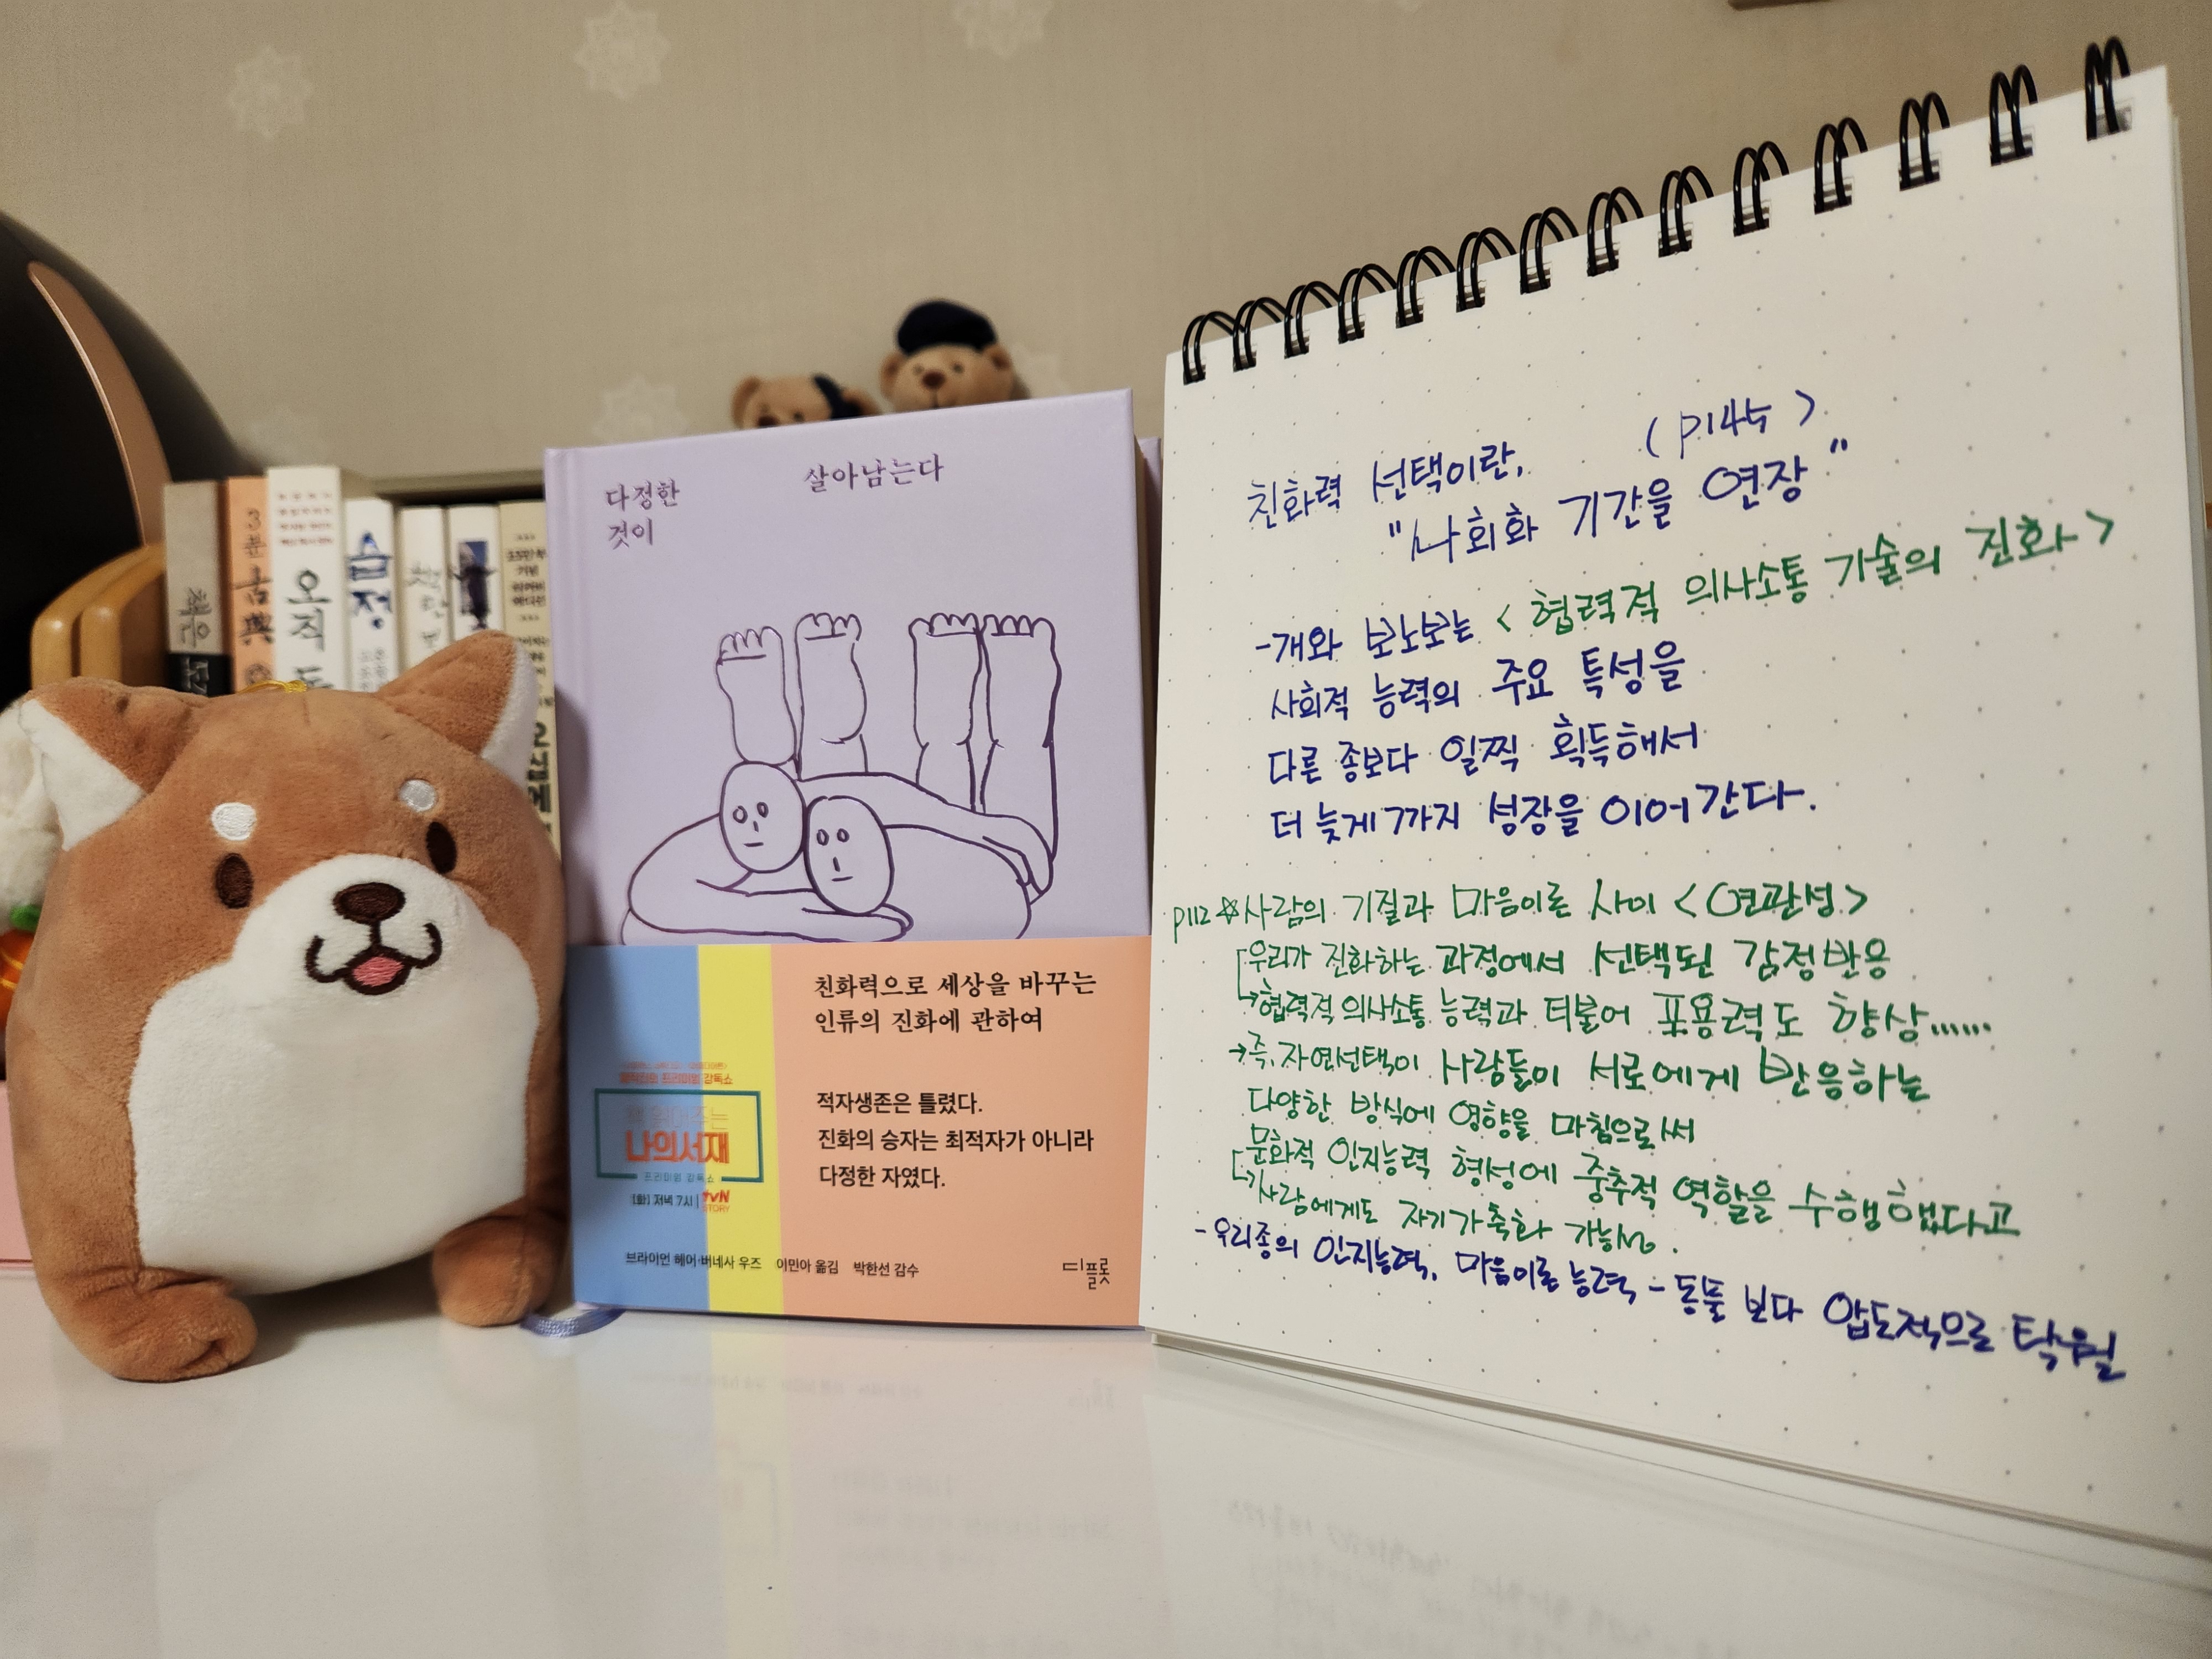 다정한
것이
살아남는다
친화력으로 세상을 바꾸는
인류의 진화에 관하여
적자생존은 틀렸다.
진화의 승자는 최적자가 아니라
다정한 자였다.
프리미엄 강독쇼
책 읽어주는
나의서재
프리미엄 강독쇼
[화] 저녁 7시 | tvN
STORY
브라이언 헤어·버네사 우즈 이민아 옮김 박한선 감수
디플롯
책은
3분
오직
습정
(p145)
친화력 선택이란,
"사회화 기간을 연장"
-개와 보노보는 <협력적 의사소통 기술의 진화>
사회적 능력의 주요 특성을
다른 종보다 일찍 획득해서
더 늦게까지 성장을 이어간다.
p112 ☆사람의 기질과 마음이론 사이 <연관성>
우리가 진화하는 과정에서 선택된 감정반응
↳협력적 의사소통 능력과 더불어 포용력도 향상......
→즉, 자연선택이 사람들이 서로에게 반응하는
다양한 방식에 영향을 마침으로써
문화적 인지능력 형성에 중추적 역할을 수행했다고
↳사람에게도 자기가축화 가능성.
-우리종의 인지능력, 마음이론 능력 - 동물 보다 압도적으로 탁월